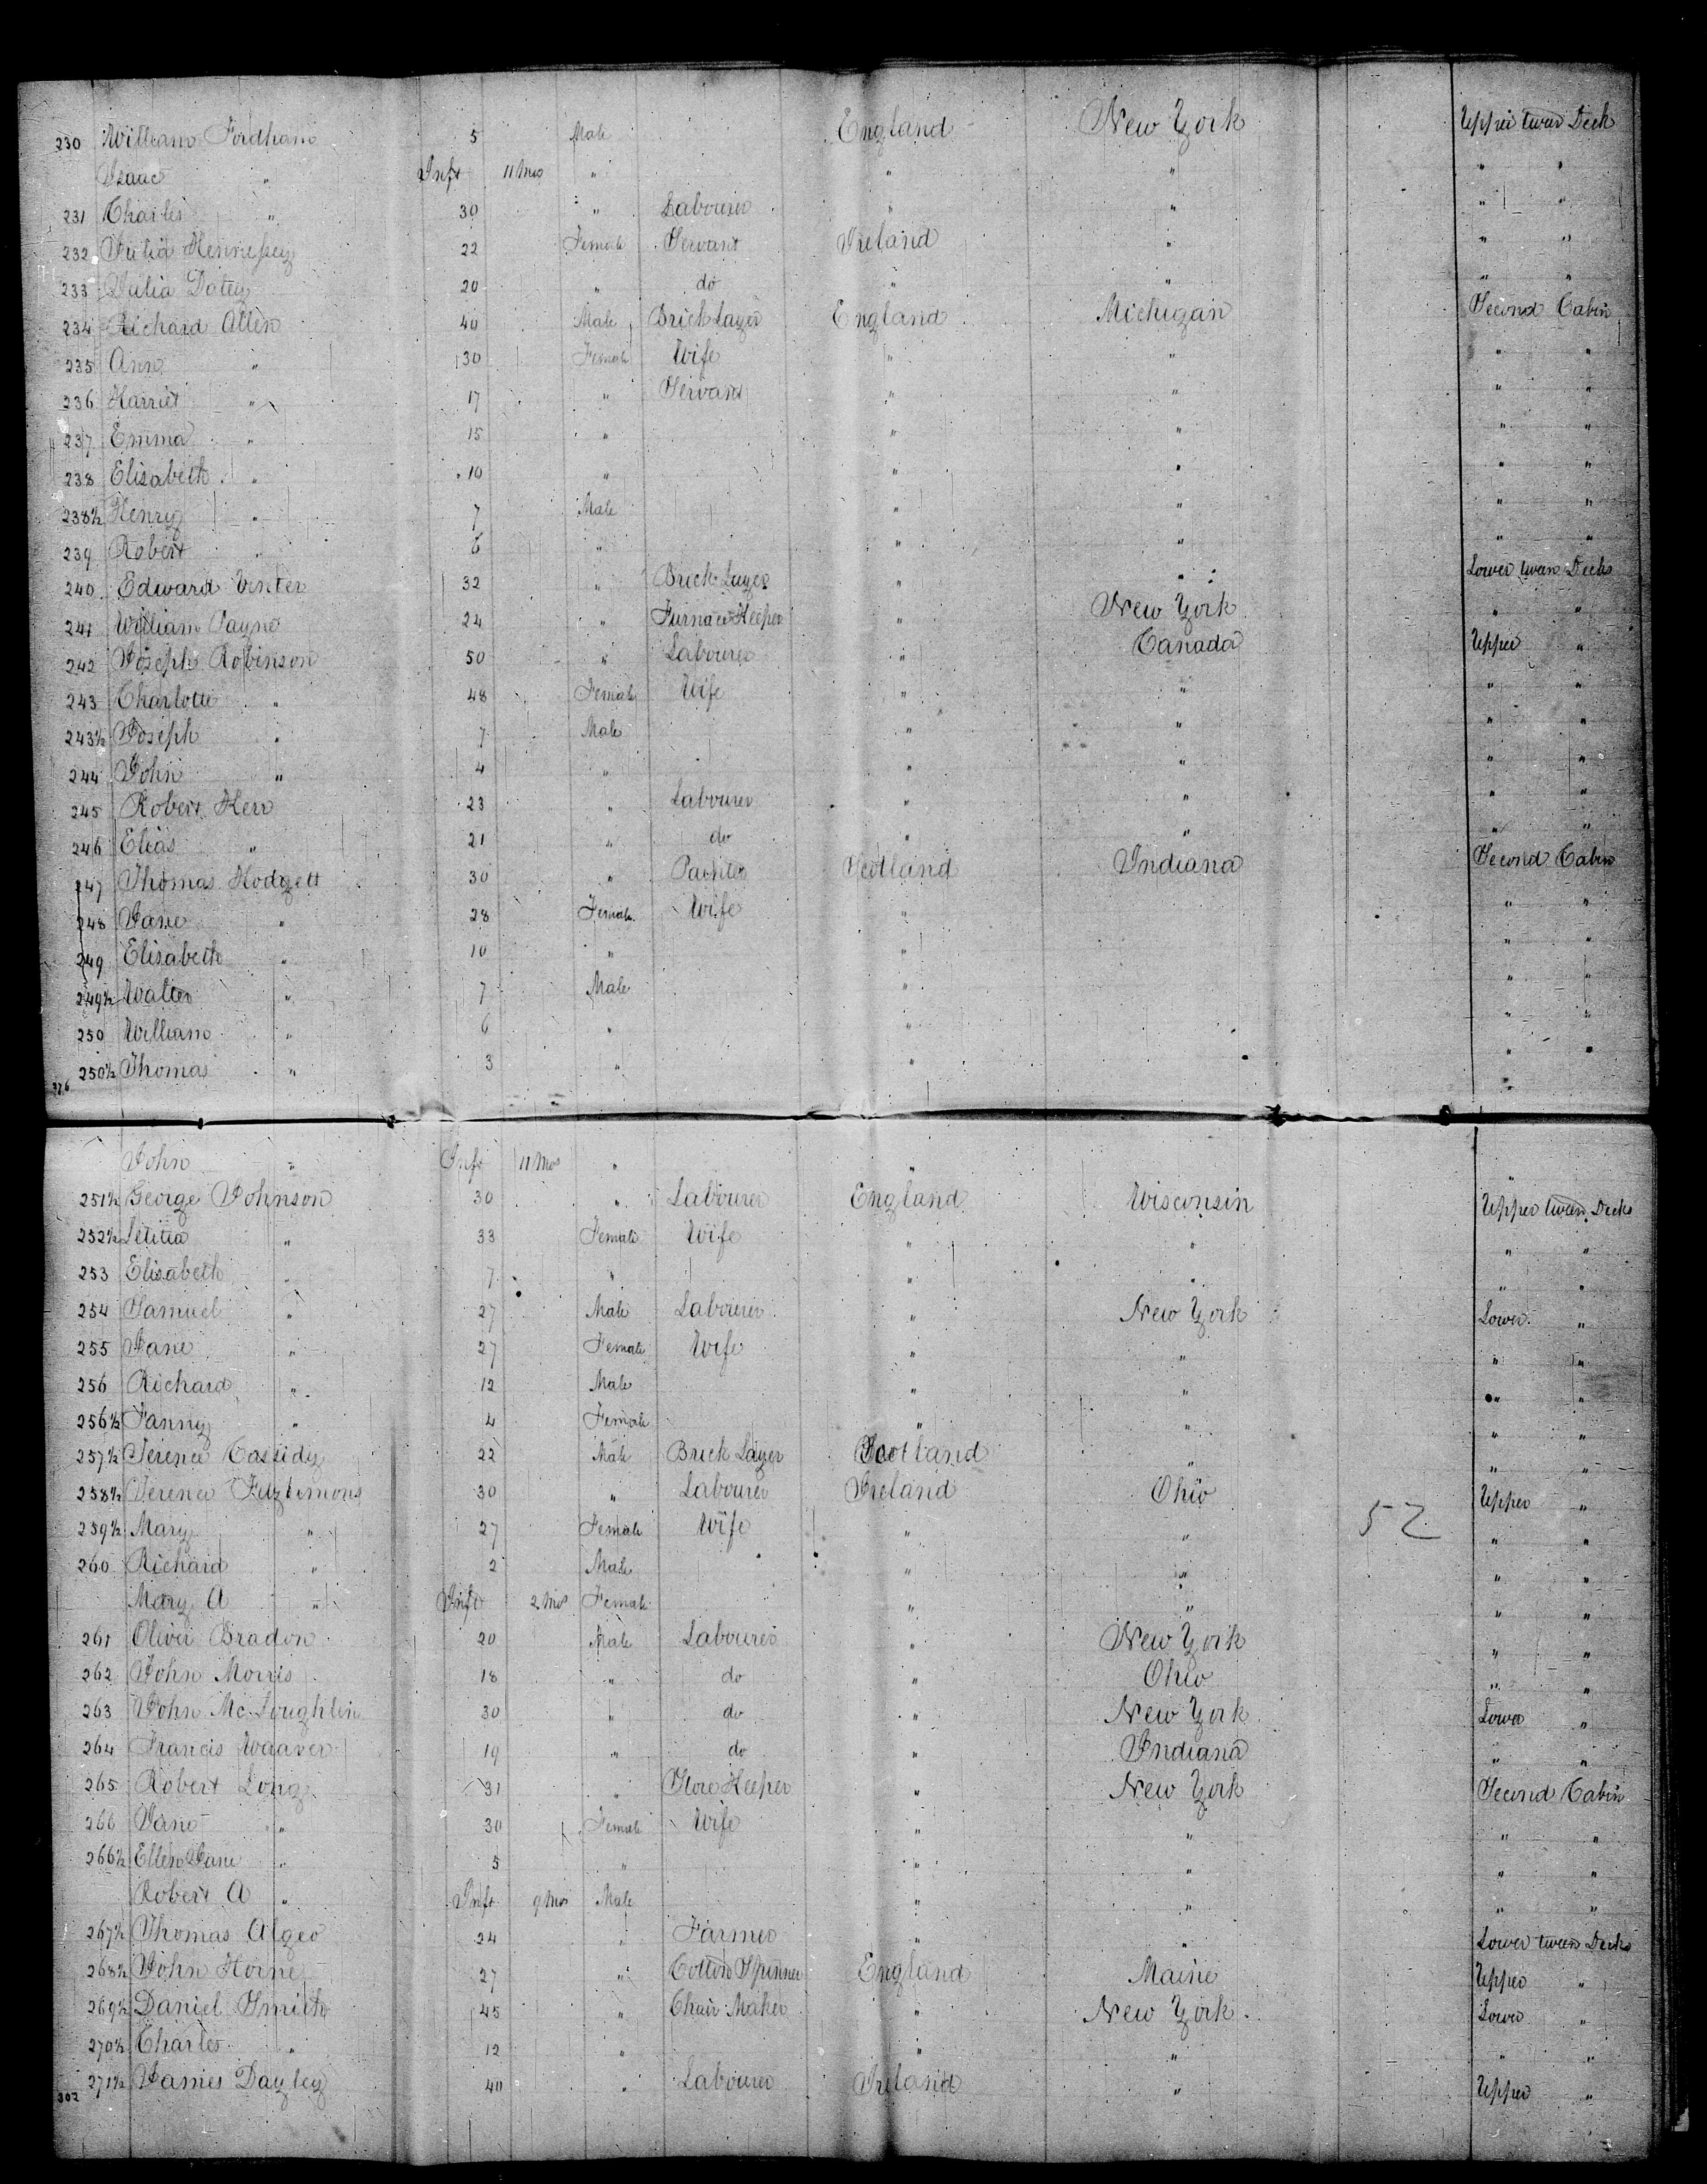 230 William Fordham 5 Male England New York Upper tween Deck
Isaac " Inft 11 Mos " " " " "
231 Charles " 30 " Labourer " " " "
232 Julia Hennessey 22 Female Servant Ireland " " "
233 Julia Daley 20 " do " " " "
234 Richard Allen 40 Male Brick Layer England Michigan Second Cabin
235 Ann " 30 Female Wife " " " "
236 Harriet " 17 " Servant " " " "
237 Emma " 15 " " " " "
238 Elisabeth " 10 " " " " "
238½ Henry " 7 Male " " " "
239 Robert " 6 " " " " "
240 Edward Venter 32 " Brick Layer " " Lower tween Decks
241 William Payne 24 " Furnace Keeper " New York " "
242 Joseph Robinson 50 " Labourer " Canada Upper "
243 Charlotte " 48 Female Wife " " " "
243½ Joseph " 7 Male " " " "
244 John " 4 " " " " "
245 Robert Kerr 23 " Labourer " " " "
246 Elias " 21 " do " " " "
247 Thomas Hodgett 30 " Painter Scotland Indiana Second Cabin
248 Jane " 28 Female Wife " " "
249 Elisabeth " 10 " " " "
249½ Walter " 7 Male " " "
250 William " 6 " " " "
250½ Thomas " 3 " " " "
276
John " Inft 11 Mos " " "
251½ George Johnson 30 " Labourer England Wisconsin Upper tween Decks
252½ Letitia " 33 Female Wife " " " "
253 Elisabeth " 7 " " " " "
254 Samuel " 27 Male Labourer " New York Lower "
255 Jane " 27 Female Wife " " " "
256 Richard " 12 Male " " " "
256½ Fanny " 4 Female " " " "
257½ Terence Cassidy 22 Male Brick Layer Scotland " " "
258½ Terence Fitzsimons 30 " Labourer Ireland Ohio Upper "
259½ Mary " 27 Female Wife " " 52 " "
260 Richard " 2 Male " " " "
Mary A " Inft 2 Mos Female " " " "
261 Oliver Bradon 20 Male Labourer " New York " "
262 John Morris 18 " do " Ohio " "
263 John McLoughlin 30 " do " New York Lower "
264 Francis Weaver 19 " do " Indiana " "
265 Robert Long 31 " Store Keeper " New York Second Cabin
266 Jane " 30 Female Wife " " " "
266½ Ellen Jane " 5 " " " " "
Robert A " Inft 9 Mos Male " " " "
267½ Thomas Algeo 24 " Farmer " " Lower tween Decks
268½ John Horne 27 " Cotton Spinner England Maine Upper "
269½ Daniel Smith 45 " Chair Maker " New York Lower "
270½ Charles " 12 " " " " "
271½ James Dayley 40 " Labourer Ireland " Upper "
302